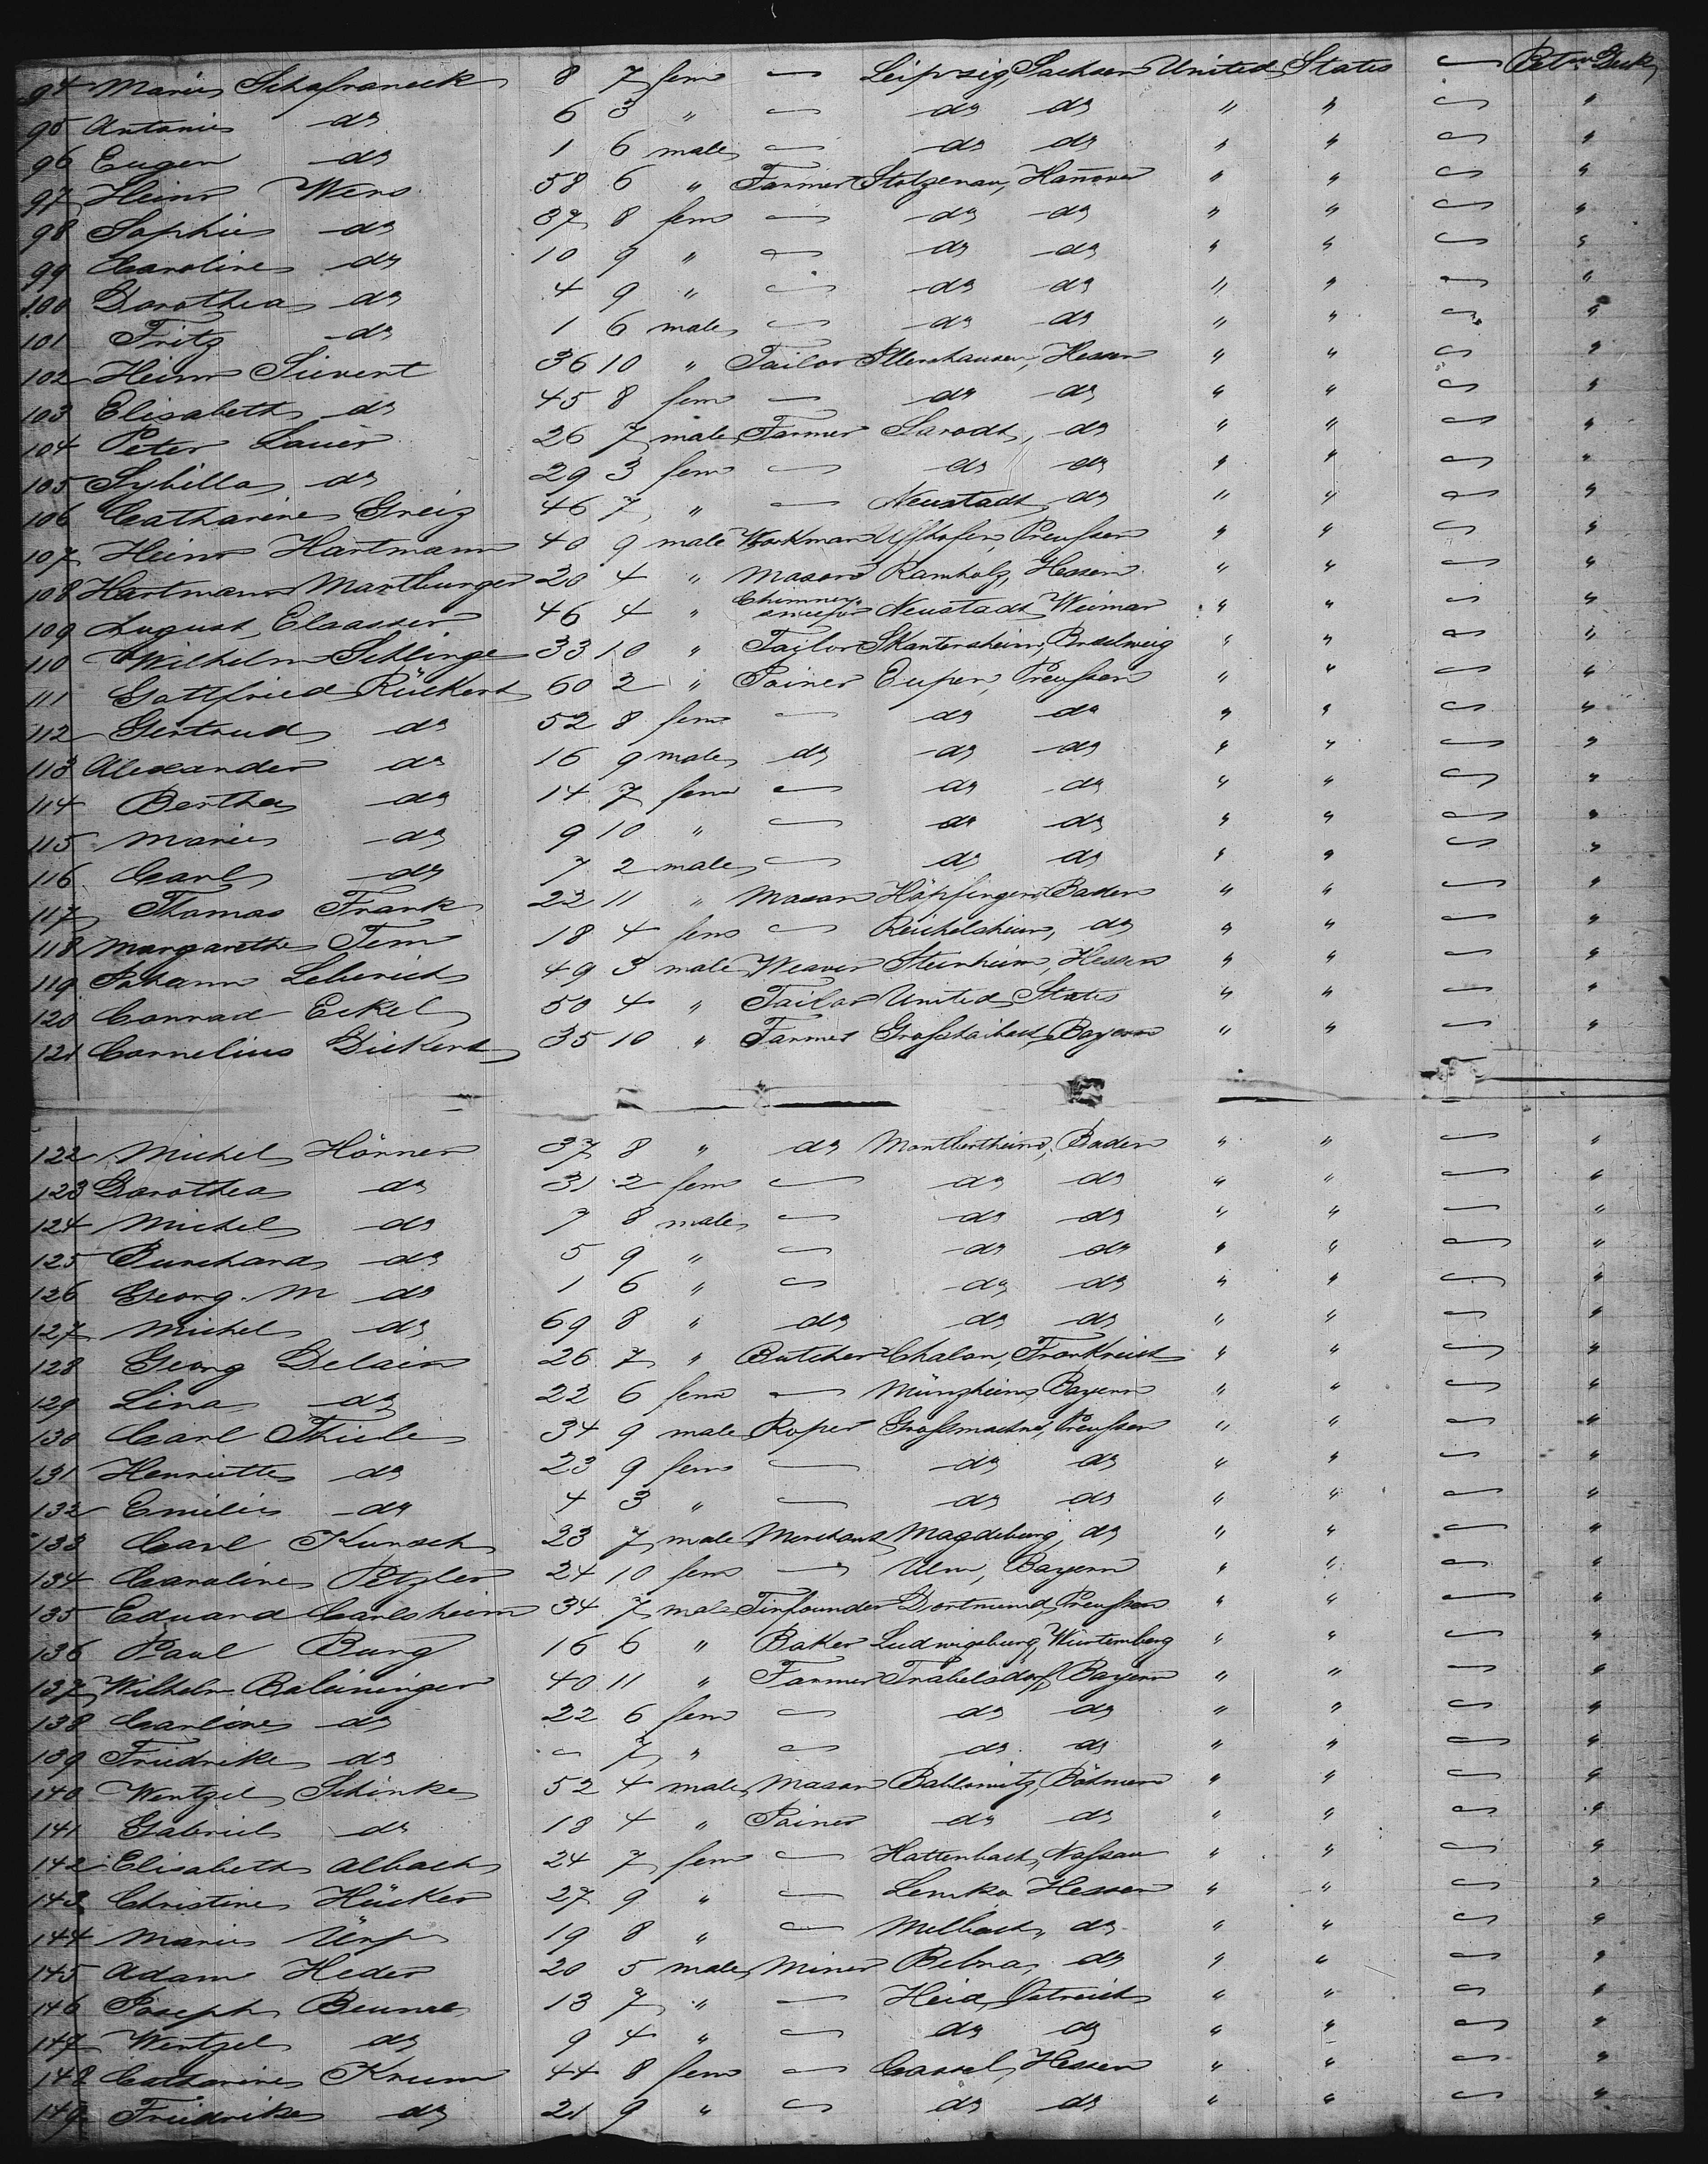 94 Marie Schafraneck 8 7 fem — Leipzig, Sachsen United States — Betw Deck
95 Antonie do 6 3 " — do do " " — "
96 Eugen do 1 6 male — do do " " — "
97 Heinr Wers 58 6 " Farmer Stolzenau, Hanover " " — "
98 Sophie do 37 8 fem — do do " " — "
99 Caroline do 10 9 " — do do " " — "
100 Dorothea do 4 9 " — do do " " — "
101 Fritz do 1 6 male — do do " " — "
102 Heinr Sievert 36 10 " Tailor Illenhausen, Hessen " " — "
103 Elisabeth do 45 8 fem — do do " " — "
104 Peter Lauer 26 7 male Farmer Sarodt, do " " — "
105 Sybilla do 29 3 fem — do do " " — "
106 Catharine Greiz 46 7 " — Neustadt do " " — "
107 Heinr Hartmann 40 9 male Workman Uffhofen, Preußen " " — "
108 Hartmann Martburger 20 4 " Mason Ramholz, Hessen " " — "
109 August Elsasser 46 4 " Chimney sweeper Neustadt Weimar " " — "
110 Wilhelm Schlinge 33 10 " Taylor " " — "
111 Gottfried Rückert 60 2 " Joiner Eupen, Preußen " " — "
112 Gertrud do 52 8 fem — do do " " — "
113 Alexander do 16 9 male do do do " " — "
114 Bertha do 14 7 fem — do do " " — "
115 Marie do 9 10 " — do do " " — "
116 Carl do 7 2 male — do do " " — "
117 Thomas Frank 22 11 " Mason Höpfingen, Baden " " — "
118 Margarethe Tem 18 4 fem — Reichelsheim, do " " — "
119 Johann Leberich 49 3 male Weaver Steinheim, Hessen " " — "
120 Conrad Eckel 50 4 " Tailor United States " " — "
121 Cornelius Dickert 35 10 " Farmer Bayern " " — "
122 Michel Hörner 37 8 " do Baden " " — "
123 Dorothea do 31 2 fem — do do " " — "
124 Michel do 7 8 male — do do " " — "
125 Burchard do 5 9 " — do do " " — "
126 Georg M do 1 6 " — do do " " — "
127 Michel do 69 8 " do do do " " — "
128 Georg Delain 26 7 " Butcher Chalon, Frankreich " " — "
129 Lina do 22 6 fem — Münzheim, Bayern " " — "
130 Carl Thiele 34 9 male Roper Preußen " " — "
131 Henriette do 23 9 fem — do do " " — "
132 Emilie do 4 3 " — do do " " — "
133 Carl Kunsch 23 7 male Merchant Magdeburg, do " " — "
134 Caroline Petzler 24 10 fem — Ulm, Bayern " " — "
135 Eduard Carlsheim 34 7 male Tinfounder Dortmund, Preußen " " — "
136 Paul Burg 16 6 " Baker Ludwigsburg, Würtemberg " " — "
137 Wilhelm Baleininger 40 11 " Farmer Trabelsdorf, Bayern " " — "
138 Carline do 22 6 fem — do do " " — "
139 Friedrike do — 7 " — do do " " — "
140 Wentzel Schinke 52 4 male Mason Bablowitz, Böhmen " " — "
141 Gabriel do 18 4 " Joiner do do " " — "
142 Elisabeth Albach 24 7 fem — Hattenbach, Naßau " " — "
143 Christine Hücker 27 9 " — Lemka Hessen " " — "
144 Marie Urf 19 8 " — Melbach, do " " — "
145 Adam Heder 20 5 male Miner Bebra, do " " — "
146 Joseph Beunre 13 7 " — Heid, Ostreich " " — "
147 Wentzel do 9 4 " — do do " " — "
148 Catharine Krum 44 8 fem — Cassel, Hessen " " — "
149 Friedrike do 21 9 " — do do " " — "